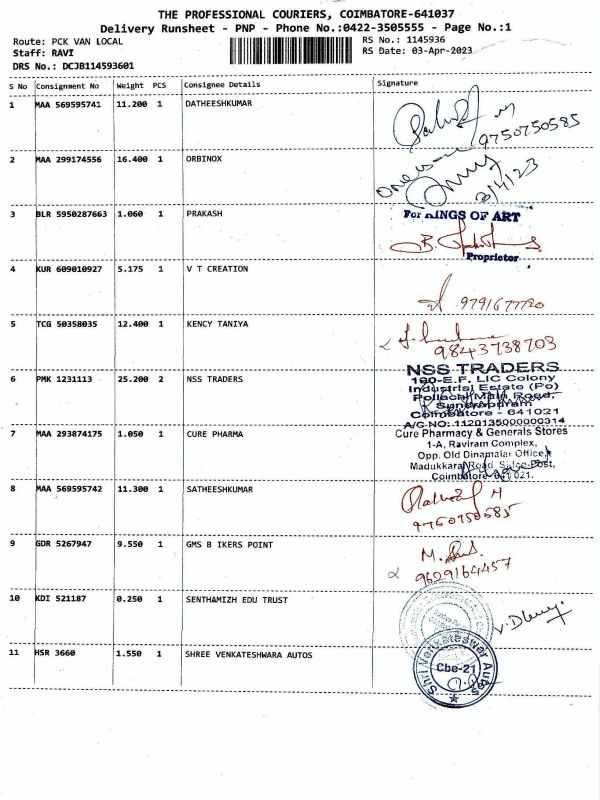 THE PROFESSIONAL COURIERS, COIMBATORE-641037
Delivery Runsheet - PNP - Phone No.:0422-3505555 - Page No.:1
Route: PCK VAN LOCAL
Staff: RAVI
DRS No.: DCJB114593601
RS No.: 1145936
RS Date: 03-Apr-2023
S No Consignment No Weight PCS Consignee Details Signature
1 MAA 569595741 11.200 1 DATHEESHKUMAR
9750750585
2 MAA 299174556 16.400 1 ORBINOX
3/4/23
3 BLR 5950287663 1.060 1 PRAKASH
For KINGS OF ART
Proprietor
4 KUR 609010927 5.175 1 V T CREATION
9791677720
5 TCG 50358035 12.400 1 KENCY TANIYA
9843738703
6 PMK 1231113 25.200 2 NSS TRADERS
NSS TRADERS
190-E.F. LIC Colony
Industrial Estate (Po)
Pollachi Main Road,
Sundrapuram
Coimbatore - 641021
A/C NO: 1120135000000314
7 MAA 293874175 1.050 1 CURE PHARMA
Cure Pharmacy & Generals Stores
1-A, Raviram Complex,
Opp. Old Dinamalar Office,
Madukkarai Road, Sidco-Post,
Coimbatore-641 021.
8 MAA 569595742 11.300 1 SATHEESHKUMAR
9750750585
9 GDR 5267947 9.550 1 GMS B IKERS POINT
9629164457
10 KDI 521187 0.250 1 SENTHAMIZH EDU TRUST
11 HSR 3660 1.550 1 SHREE VENKATESHWARA AUTOS
Shri Venkateswar Autos
Cbe-21